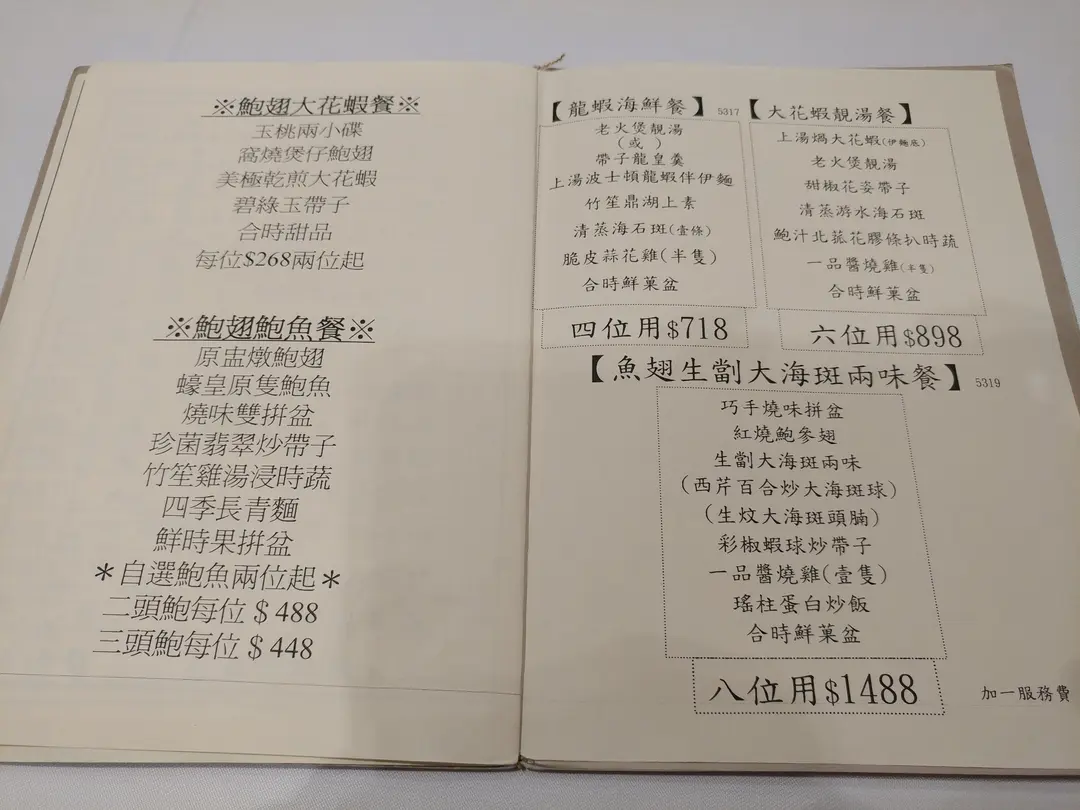 ※鮑翅大花蝦餐※
玉桃兩小碟
窩燒煲仔鮑翅
美極乾煎大花蝦
碧綠玉帶子
合時甜品
每位$268兩位起
※鮑翅鮑魚餐※
原盅燉鮑翅
蠔皇原隻鮑魚
燒味雙拼盆
珍菌翡翠炒帶子
竹笙雞湯浸時蔬
四季長青麵
鮮時果拼盆
＊自選鮑魚兩位起＊
二頭鮑每位＄488
三頭鮑每位＄448
【龍蝦海鮮餐】 5317
老火煲靚湯
（或 ）
帶子龍皇羹
上湯波士頓龍蝦伴伊麵
竹笙鼎湖上素
清蒸海石斑(壹條)
脆皮蒜花雞(半隻)
合時鮮菓盆
四位用$718
【大花蝦靚湯餐】
上湯焗大花蝦(伊麵底)
老火煲靚湯
甜椒花姿帶子
清蒸游水海石斑
鮑汁北菰花膠條扒時蔬
一品醬燒雞(半隻)
合時鮮菓盆
六位用$898
【魚翅生劏大海斑兩味餐】 5319
巧手燒味拼盆
紅燒鮑參翅
生劏大海斑兩味
(西芹百合炒大海斑球)
(生炆大海斑頭腩)
彩椒蝦球炒帶子
一品醬燒雞(壹隻)
瑤柱蛋白炒飯
合時鮮菓盆
八位用$1488
加一服務費